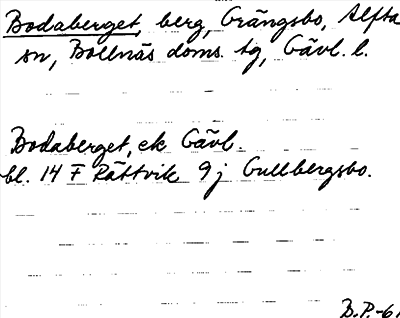 Bodaberget, berg, Grängsbo, Alfta
sn, Bollnäs doms. tg, Gävl. l.
Bodaberget, ek Gävl.
bl. 14 F Rättvik 9 j Gullbergsbo.
B.P.-61